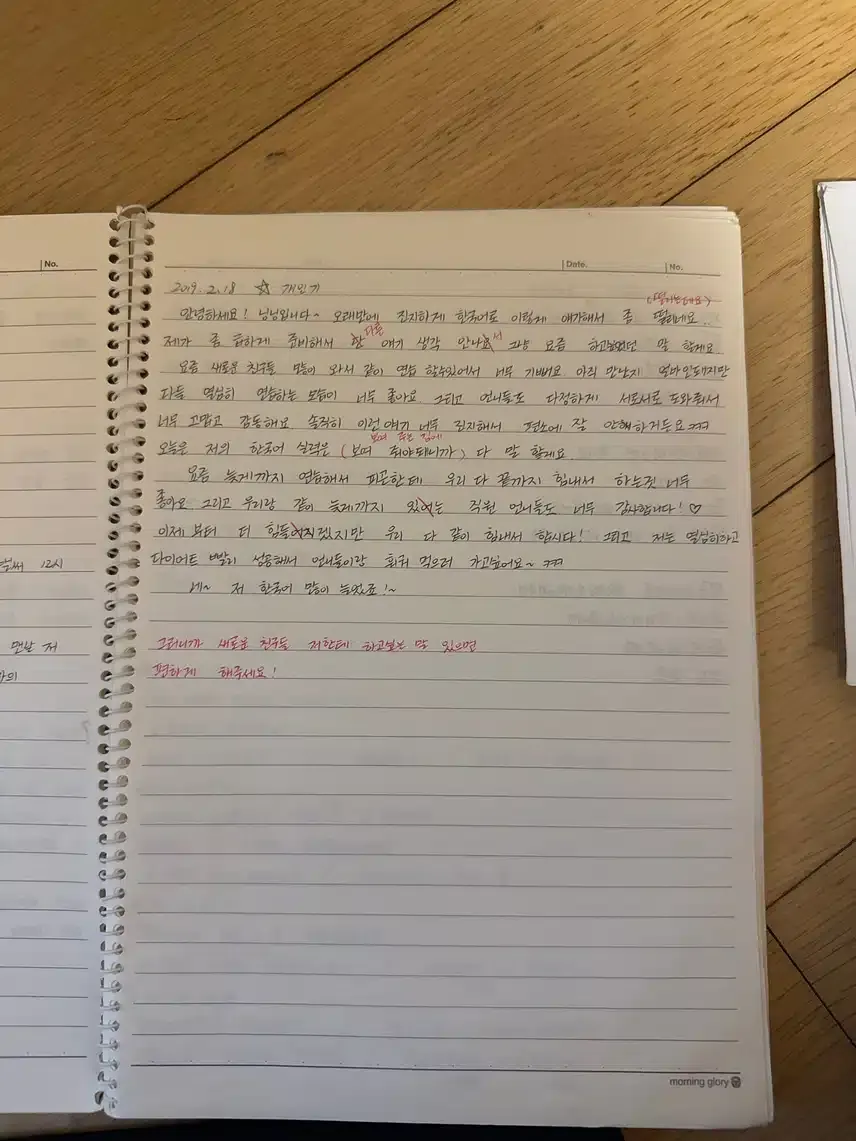 No.
Date.
No.
2019. 2. 18 ☆ 개인기
(떨리는데요)
안녕하세요! 닝닝입니다~ 오래만에 진지하게 한국어로 이렇게 얘기해서 좀 떨리네요..
다른
제가 좀 급하게 준비해서 한 얘기 생각 안나서 그냥 요즘 하고싶었던 말 할게요
요즘 새로운 친구들 많이 와서 같이 연습 할수있어서 너무 기뻐요. 아직 만난지 얼마안돼지만
다들 열심히 연습하는 모습이 너무 좋아요. 그리고 언니들도 다정하게 서로서로 도와줘서
너무 고맙고 감동해요 솔직히 이런 얘기 너무 진지해서 평소에 잘 안해하거든요 ㅋㅋ
보여 주는 김에
오늘은 저의 한국어 실력은 (보여 줘야돼니까) 다 말 할게요
요즘 늦게까지 연습해서 피곤한데 우리 다 끝까지 힘내서 하는것 너무
좋아요. 그리고 우리랑 같이 늦게까지 있는 직원 언니들도 너무 감사합니다! ♡
이제 부터 더 힘들지겠지만 우리 다 같이 힘내서 합시다! 그리고 저는 열심히하고
다이어트 빨리 성공해서 언니들이랑 훠궈 먹으러 가고싶어요~ ㅋㅋ
네~ 저 한국어 많이 늘었죠!~
그러니까 새로운 친구들 저한테 하고싶는 말 있으면
편하게 해주세요!
벌써 12시
맨날 저
morning glory